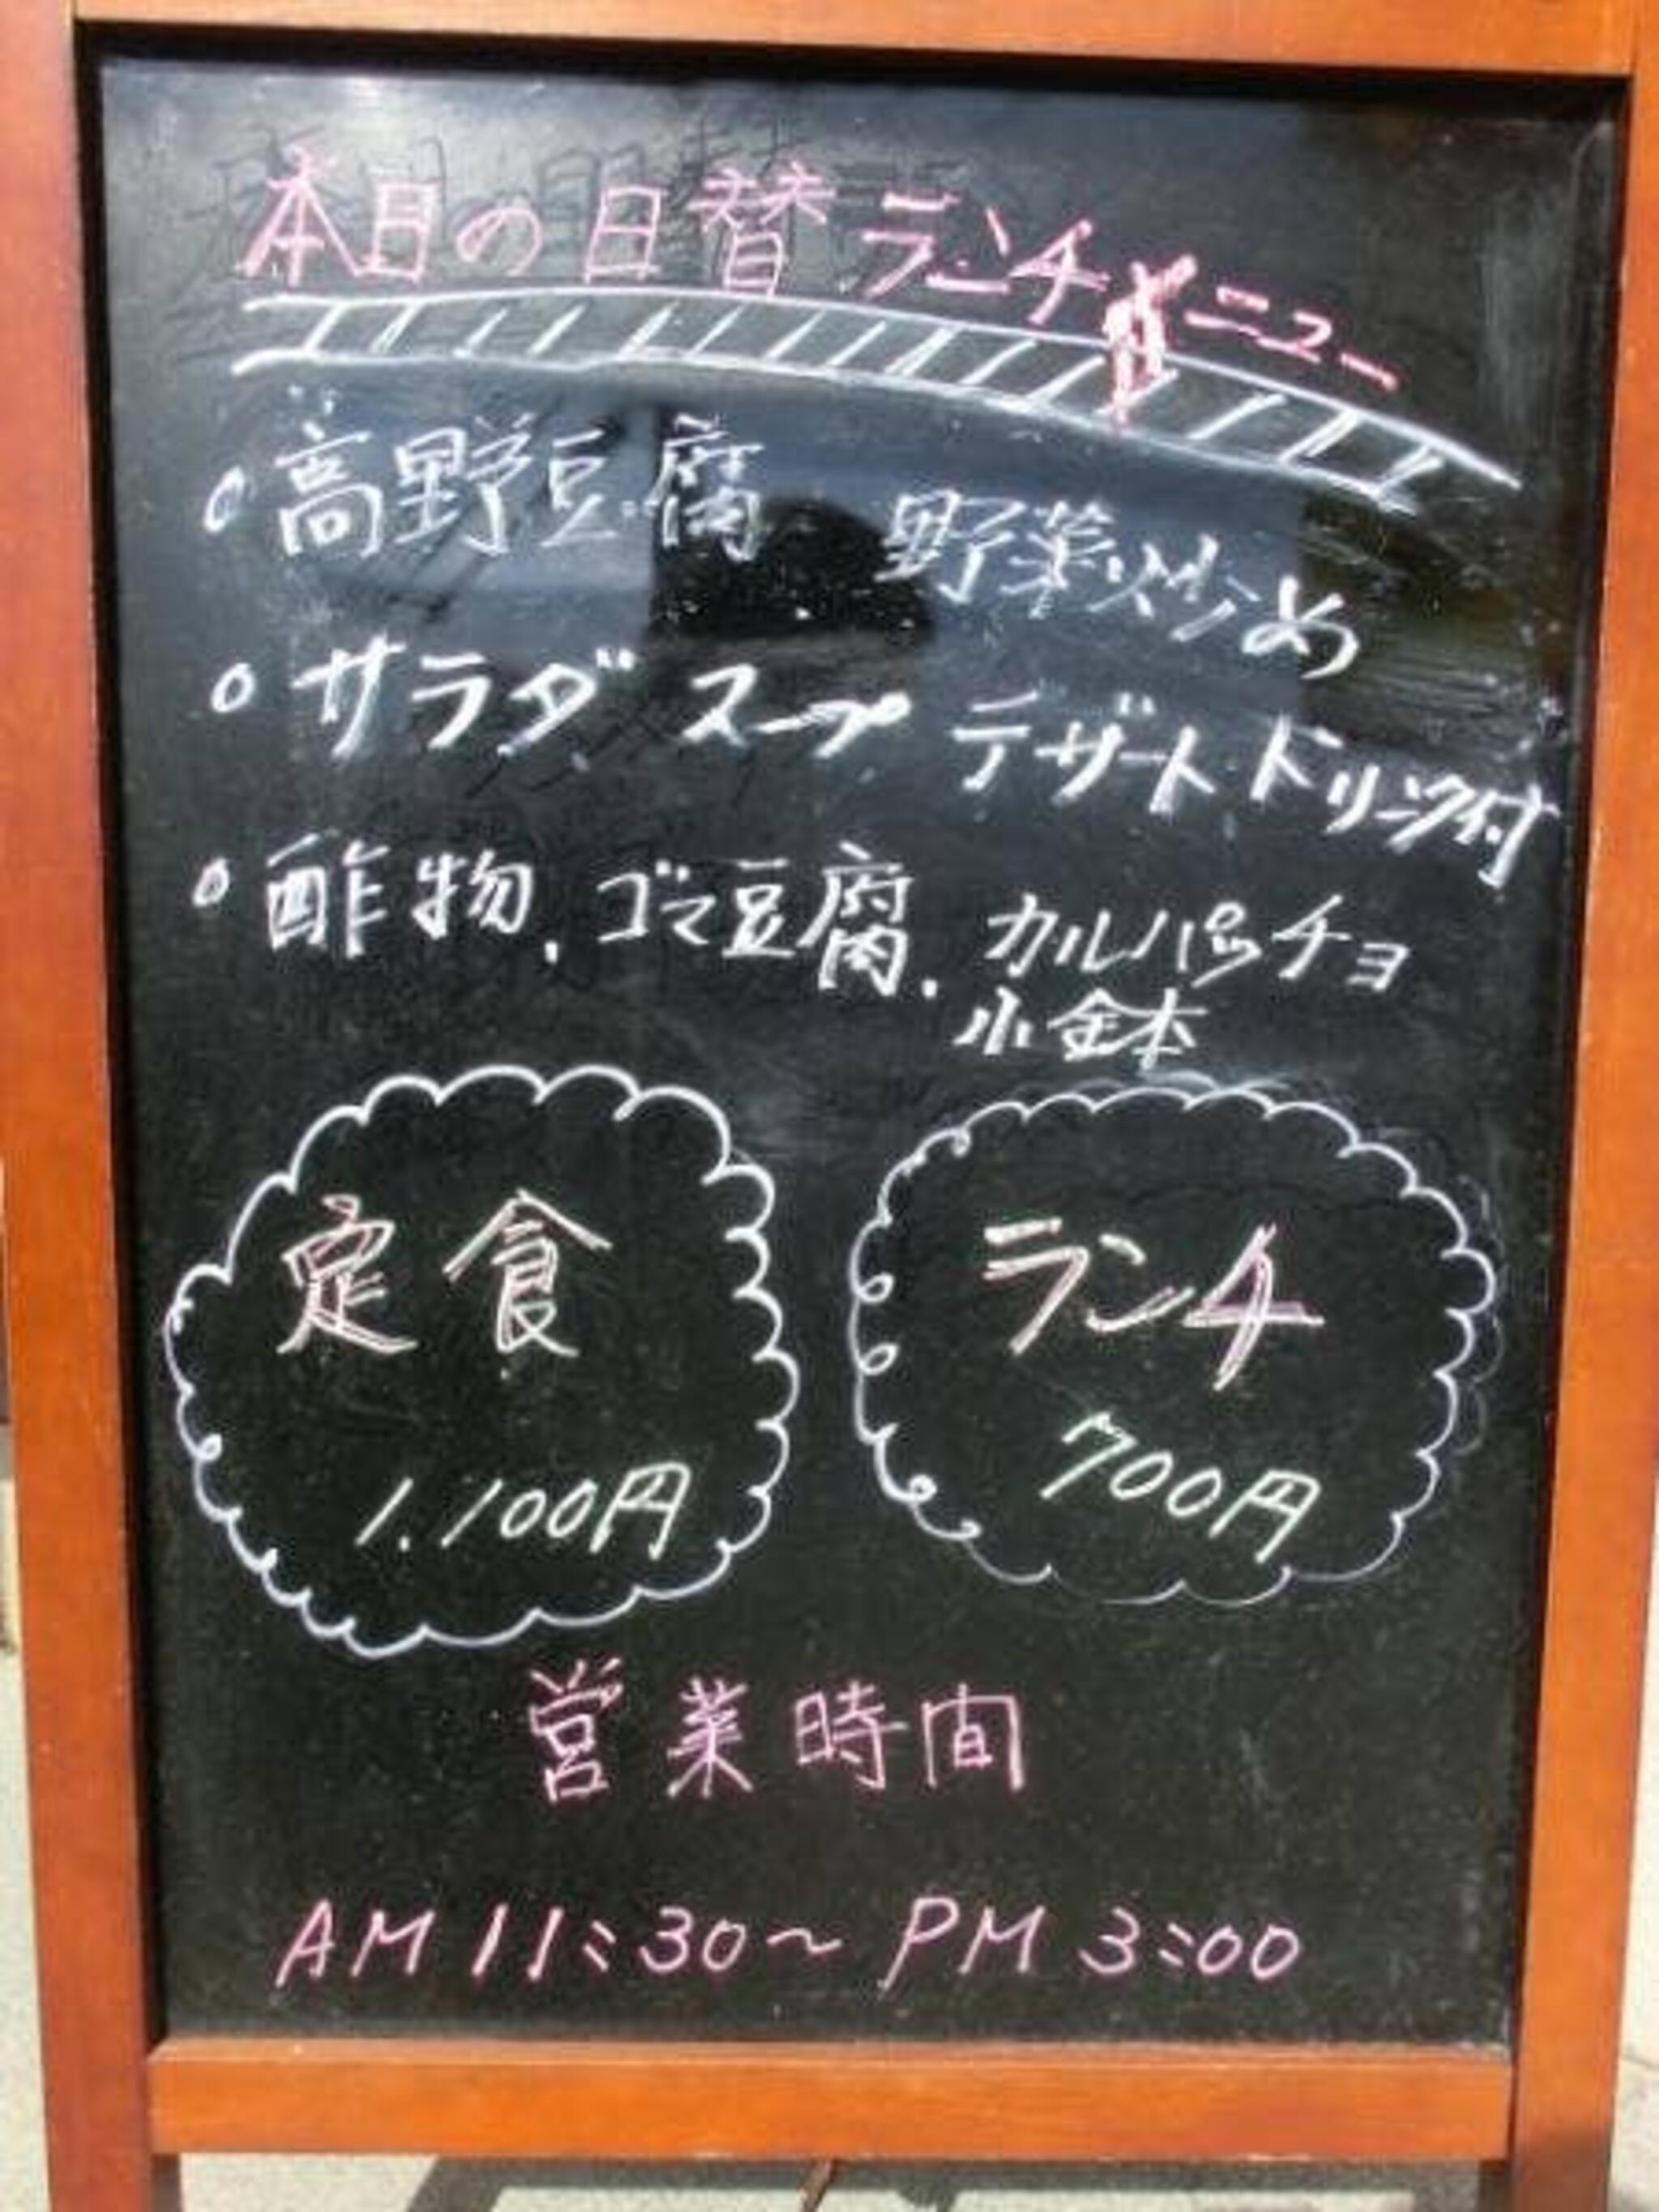 本日の日替ランチメニュー
○高野豆腐 野菜炒め
○サラダ スープ デザート ドリンク付
○酢物、ゴマ豆腐、カルパッチョ
小鉢
定食
1.100円
ランチ
700円
営業時間
AM 11:30～PM 3:00